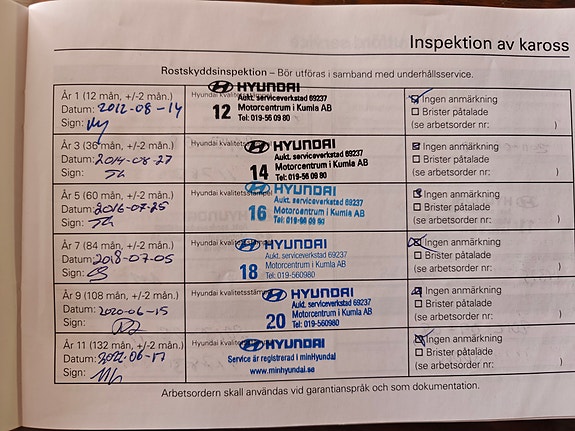 Inspektion av kaross
Rostskyddsinspektion – Bör utföras i samband med underhållsservice.
År 1 (12 mån, +/-2 mån.)
Datum: 2012-08-14
Sign:
Hyundai kvalitetsstämpel
HYUNDAI
12
Aukt. serviceverkstad 69237
Motorcentrum i Kumla AB
Tel: 019-56 09 80
Ingen anmärkning
Brister påtalade
(se arbetsorder nr: )
År 3 (36 mån, +/-2 mån.)
Datum: 2014-08-27
Sign:
Hyundai kvalitetsstämpel
HYUNDAI
14
Aukt. serviceverkstad 69237
Motorcentrum i Kumla AB
Tel: 019-56 09 80
Ingen anmärkning
Brister påtalade
(se arbetsorder nr: )
År 5 (60 mån, +/-2 mån.)
Datum: 2016-07-25
Sign:
Hyundai kvalitetsstämpel
HYUNDAI
16
Aukt. serviceverkstad 69237
Motorcentrum i Kumla AB
Tel: 019-56 09 80
Ingen anmärkning
Brister påtalade
(se arbetsorder nr: )
År 7 (84 mån, +/-2 mån.)
Datum: 2018-07-05
Sign:
Hyundai kvalitetsstämpel
HYUNDAI
18
Aukt. serviceverkstad 69237
Motorcentrum i Kumla AB
Tel: 019-560980
Ingen anmärkning
Brister påtalade
(se arbetsorder nr: )
År 9 (108 mån, +/-2 mån.)
Datum: 2020-06-15
Sign:
Hyundai kvalitetsstämpel
HYUNDAI
20
Aukt. serviceverkstad 69237
Motorcentrum i Kumla AB
Tel: 019-560980
Ingen anmärkning
Brister påtalade
(se arbetsorder nr: )
År 11 (132 mån, +/-2 mån.)
Datum: 2022-06-17
Sign:
Hyundai kvalitetsstämpel
HYUNDAI
Service är registrerad i minHyundai
www.minhyundai.se
Ingen anmärkning
Brister påtalade
(se arbetsorder nr: )
Arbetsordern skall användas vid garantianspråk och som dokumentation.